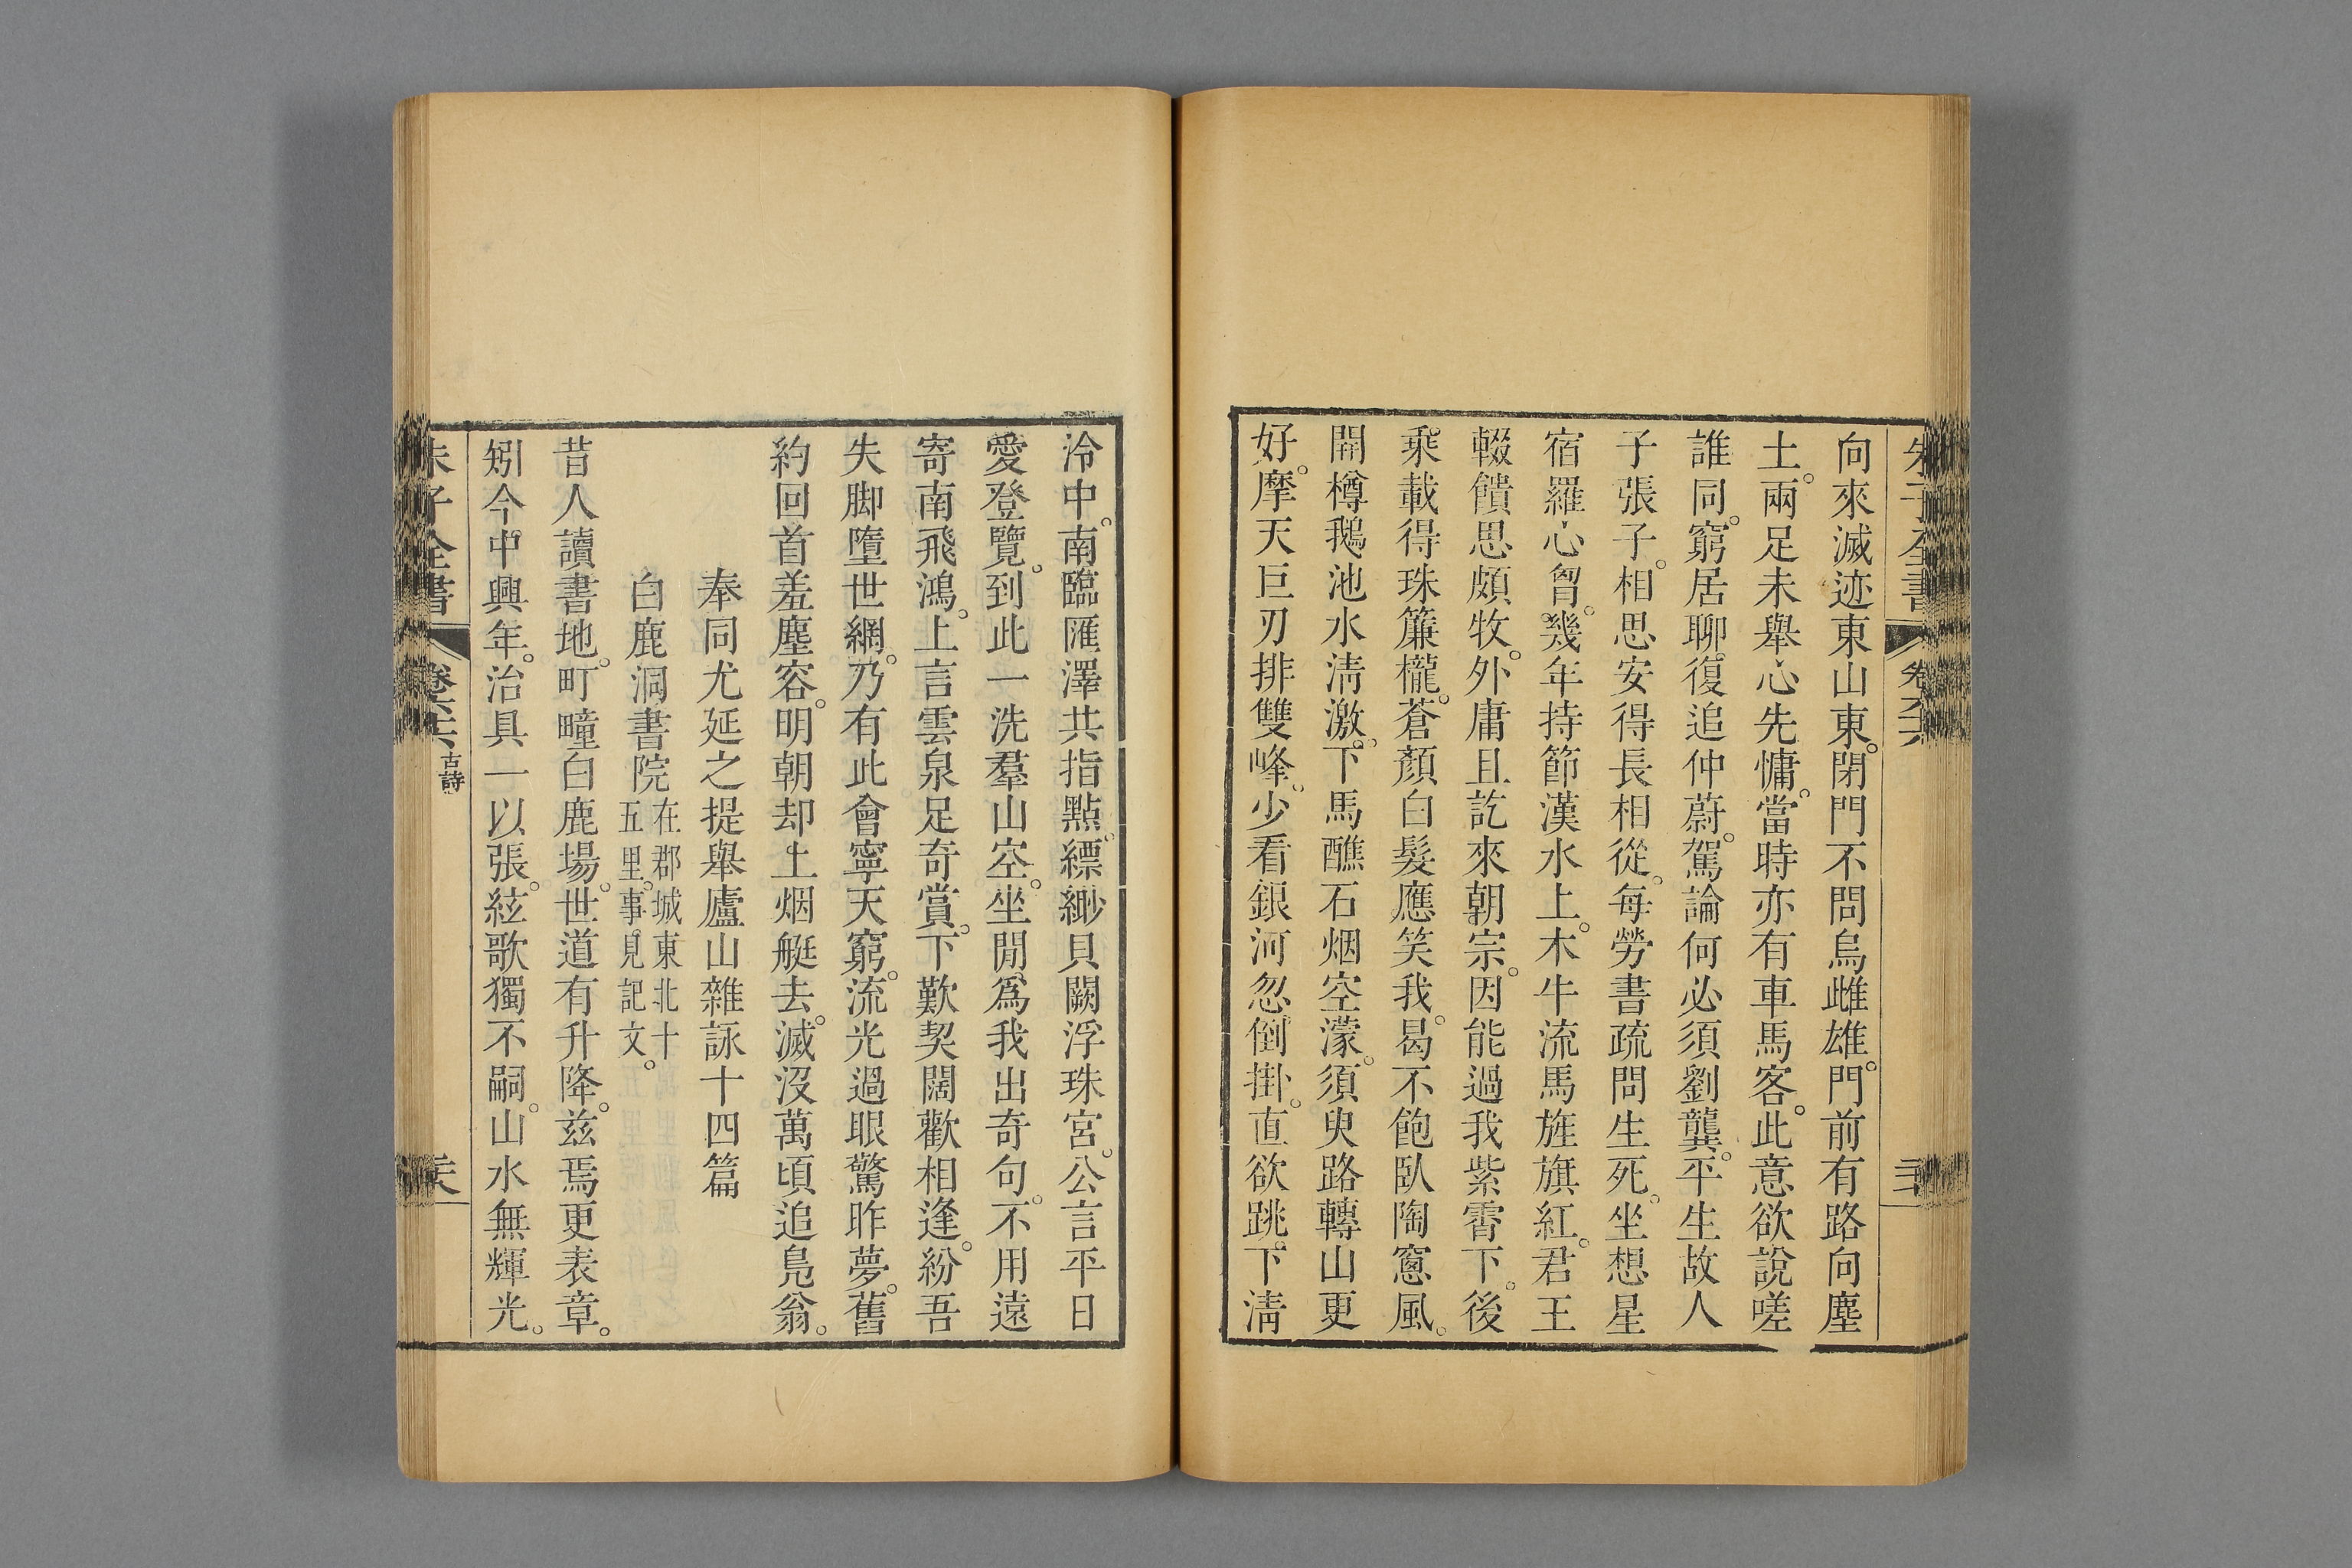 向來滅迹東山東。閉門不問烏雌雄。門前有路向塵
土。兩足未舉心先慵。當時亦有車馬客。此意欲說嗟
誰同。窮居聊復追仲蔚。駕論何必須劉龔。平生故人
子張子。相思安得長相從。每勞書疏問生死。坐想星
宿羅心胷。幾年持節漢水上。木牛流馬旌旗紅。君王
輟饋思頗牧。外庸且訖來朝宗。因能過我紫霄下。後
乘載得珠簾櫳。蒼顏白髮應笑我。曷不飽臥陶窻風。
開樽鵝池水淸激。下馬醮石烟空濛。須臾路轉山更
好。摩天巨刃排雙峰。少看銀河忽倒掛。直欲跳下淸
泠中。南臨匯澤共指點。縹緲貝闕浮珠宮。公言平日
愛登覽。到此一洗羣山空。坐閒爲我出奇句。不用遠
寄南飛鴻。上言雲泉足奇賞。下歎契闊歡相逢。紛吾
失脚墮世網。乃有此會寧天窮。流光過眼驚昨夢。舊
約回首羞塵容。明朝却上烟艇去。滅沒萬頃追鳧翁。
奉同尤延之提舉廬山雜詠十四篇
白鹿洞書院 在郡城東北十五里。事見記文。
昔人讀書地。町疃白鹿場。世道有升降。茲焉更表章。
矧今中興年。治具一以張。絃歌獨不嗣。山水無輝光。
朱子全書 卷六十六 古詩